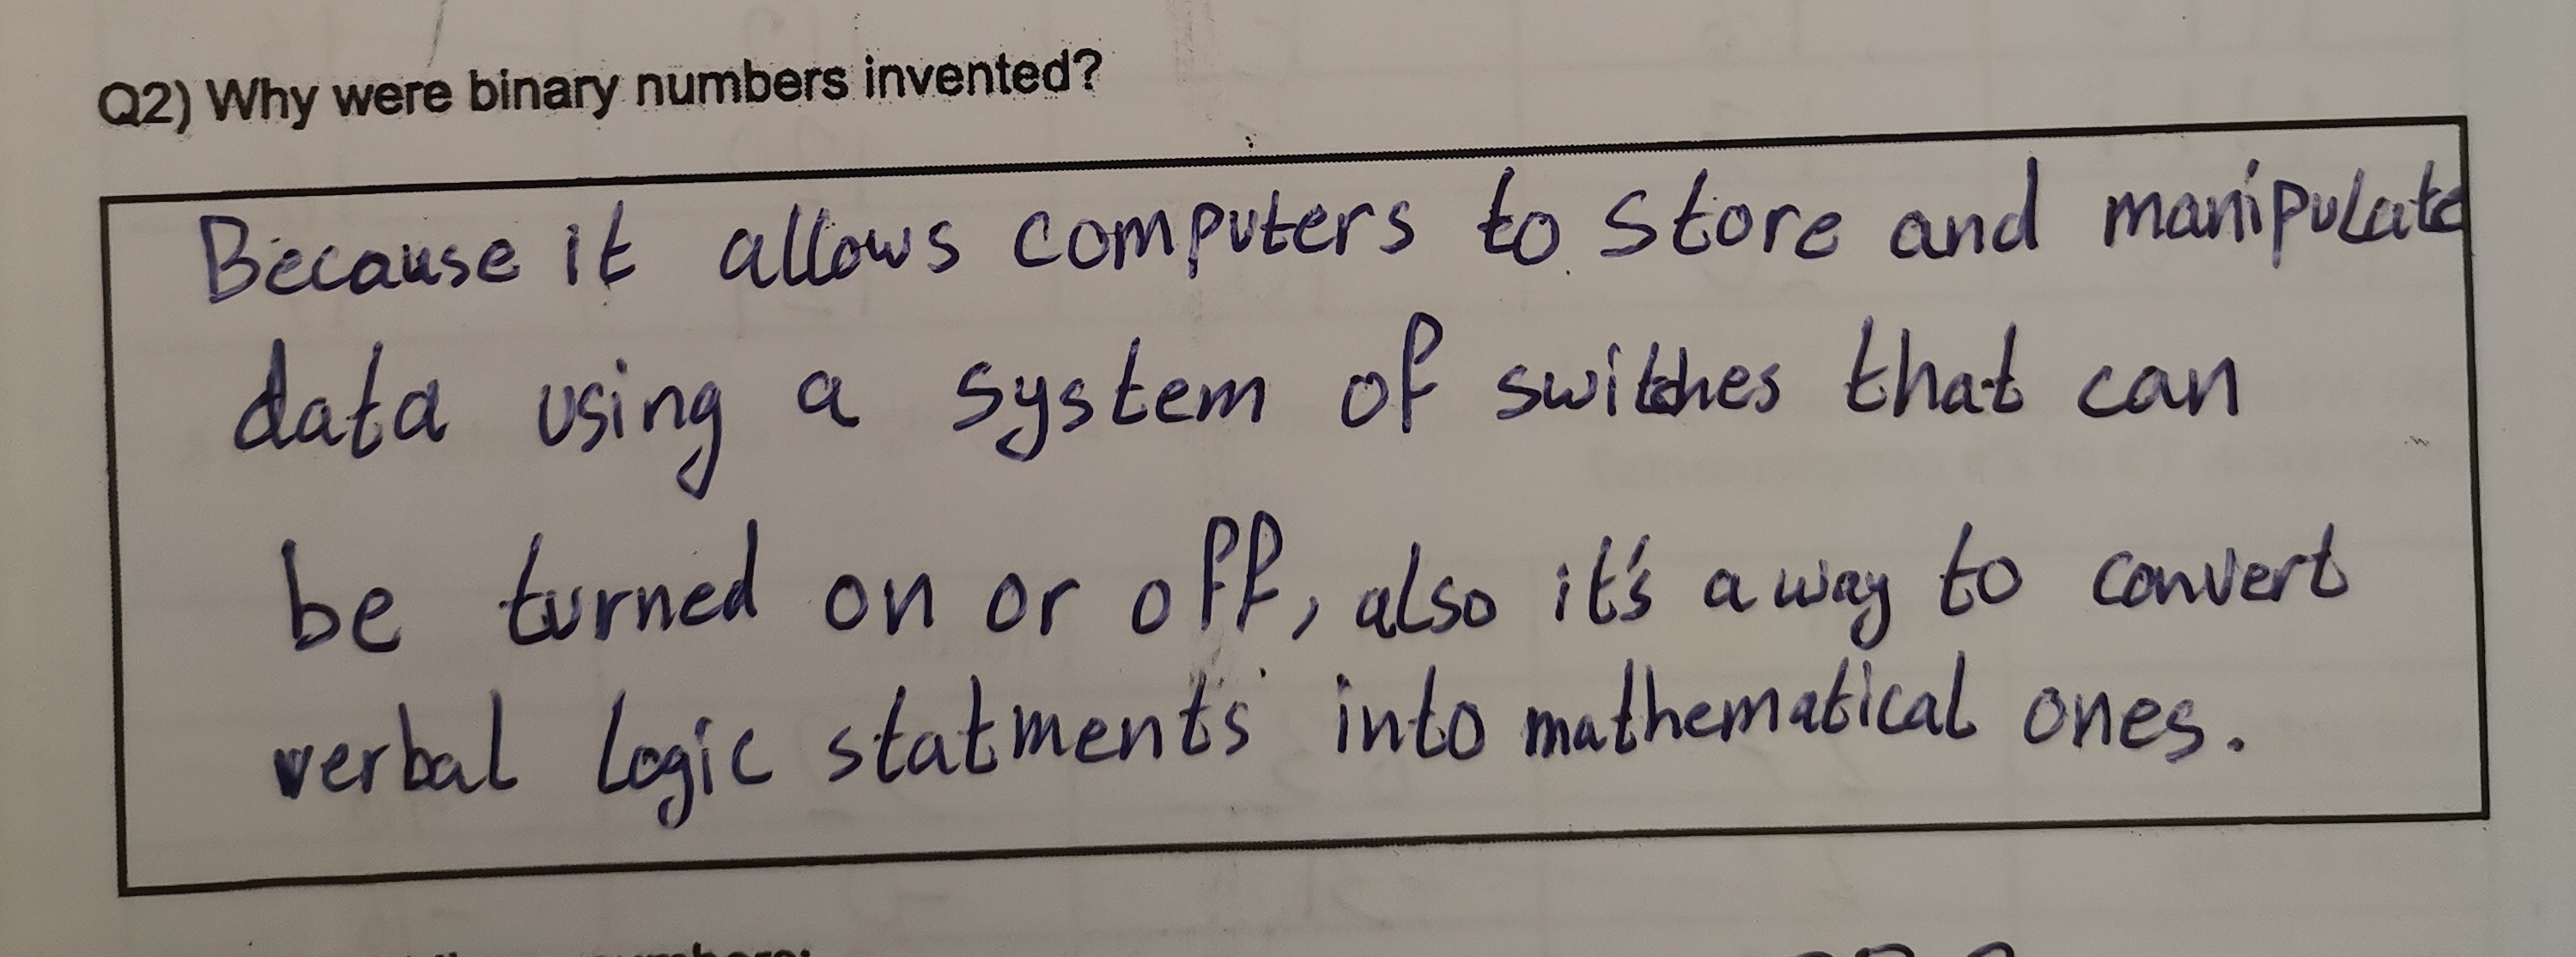 Q2) Why were binary numbers invented?
Because it allows computers to store and manipulate
data using a system of switches that can
be turned on or off, also it's a way to convert
verbal logic statments into mathematical ones.